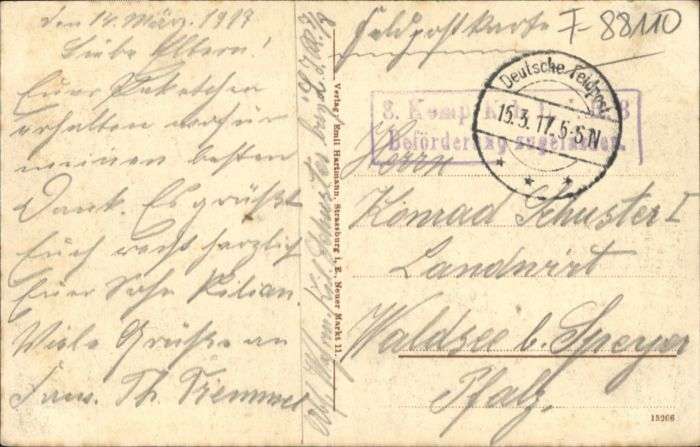 den 14. März. 1917
Liebe Eltern!
Euer Paketchen
erhalten wofür
meinen besten
Dank. Es grüßt
Euch recht herzlich
Euer Sohn Kilian.
Viele Grüße an
Fam. Th. Tremmel
Verlag Emil Hartmann, Strassburg i. E., Neuer Markt 11.
Feldpostkarte
F-88110
Deutsche Feldpost
15.3.17. 5-6 N
* * *
3. Komp.
Beförderung zugelassen.
Herrn
Konrad Schuster I
Landwirt
Waldsee b. Speyer
Pfalz.
15206